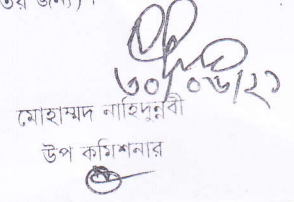 ৩০/০৬/২১
মোহাম্মদ নাহিদুন্নবী
উপ কমিশনার